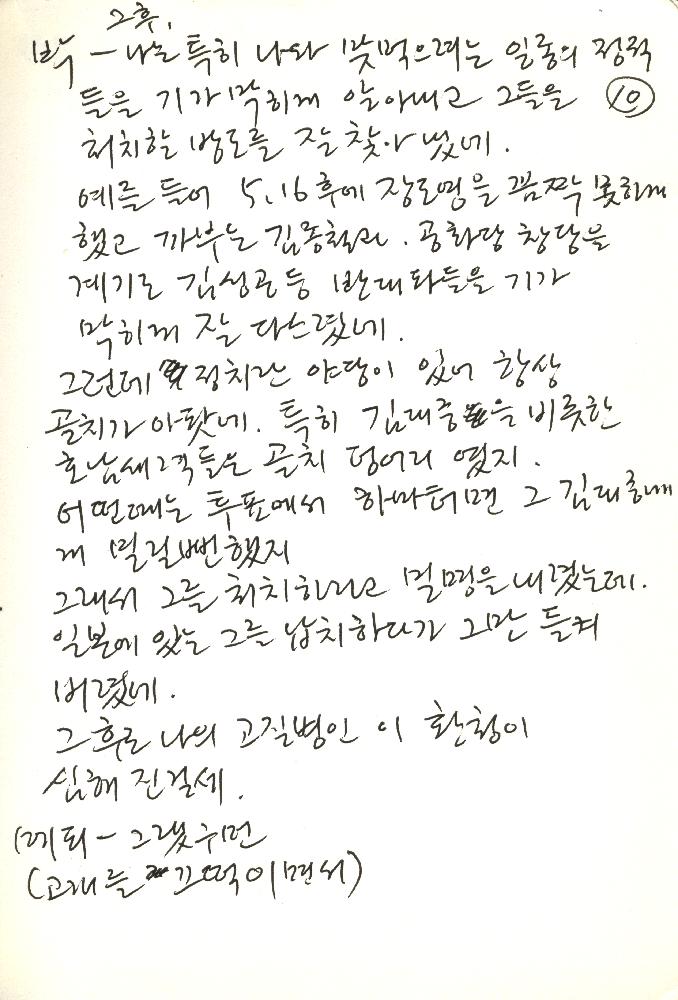 그후,
박 - 나는 특히 나와 맞먹으려는 일종의 정적
들을 기가 막히게 알아내고 그들을 ⑩
처치할 방도를 잘 찾아 냈네.
예를 들어 5.16 후에 장도영을 꼼짝 못하게
했고 까부는 김종철과. 공화당 창당을
계기로 김성곤등 반대파들을 기가
막히게 잘 다스렸네.
그런데 정치란 야당이 있어 항상
골치가 아팟네. 특히 김대중을 비롯한
호남세력들은 골치 덩어리 였지.
어떤때는 투표에서 하마터면 그 김대중에
게 밀릴뻔했지
그래서 그를 처치하라고 밀명을 내렸는데.
일본에 있는 그를 납치하다가 그만 들켜
버렸네.
그 후로 나의 고질병인 이 환청이
심해 진걸세.
메피 - 그랬구먼
(고개를 끄떡이면서)